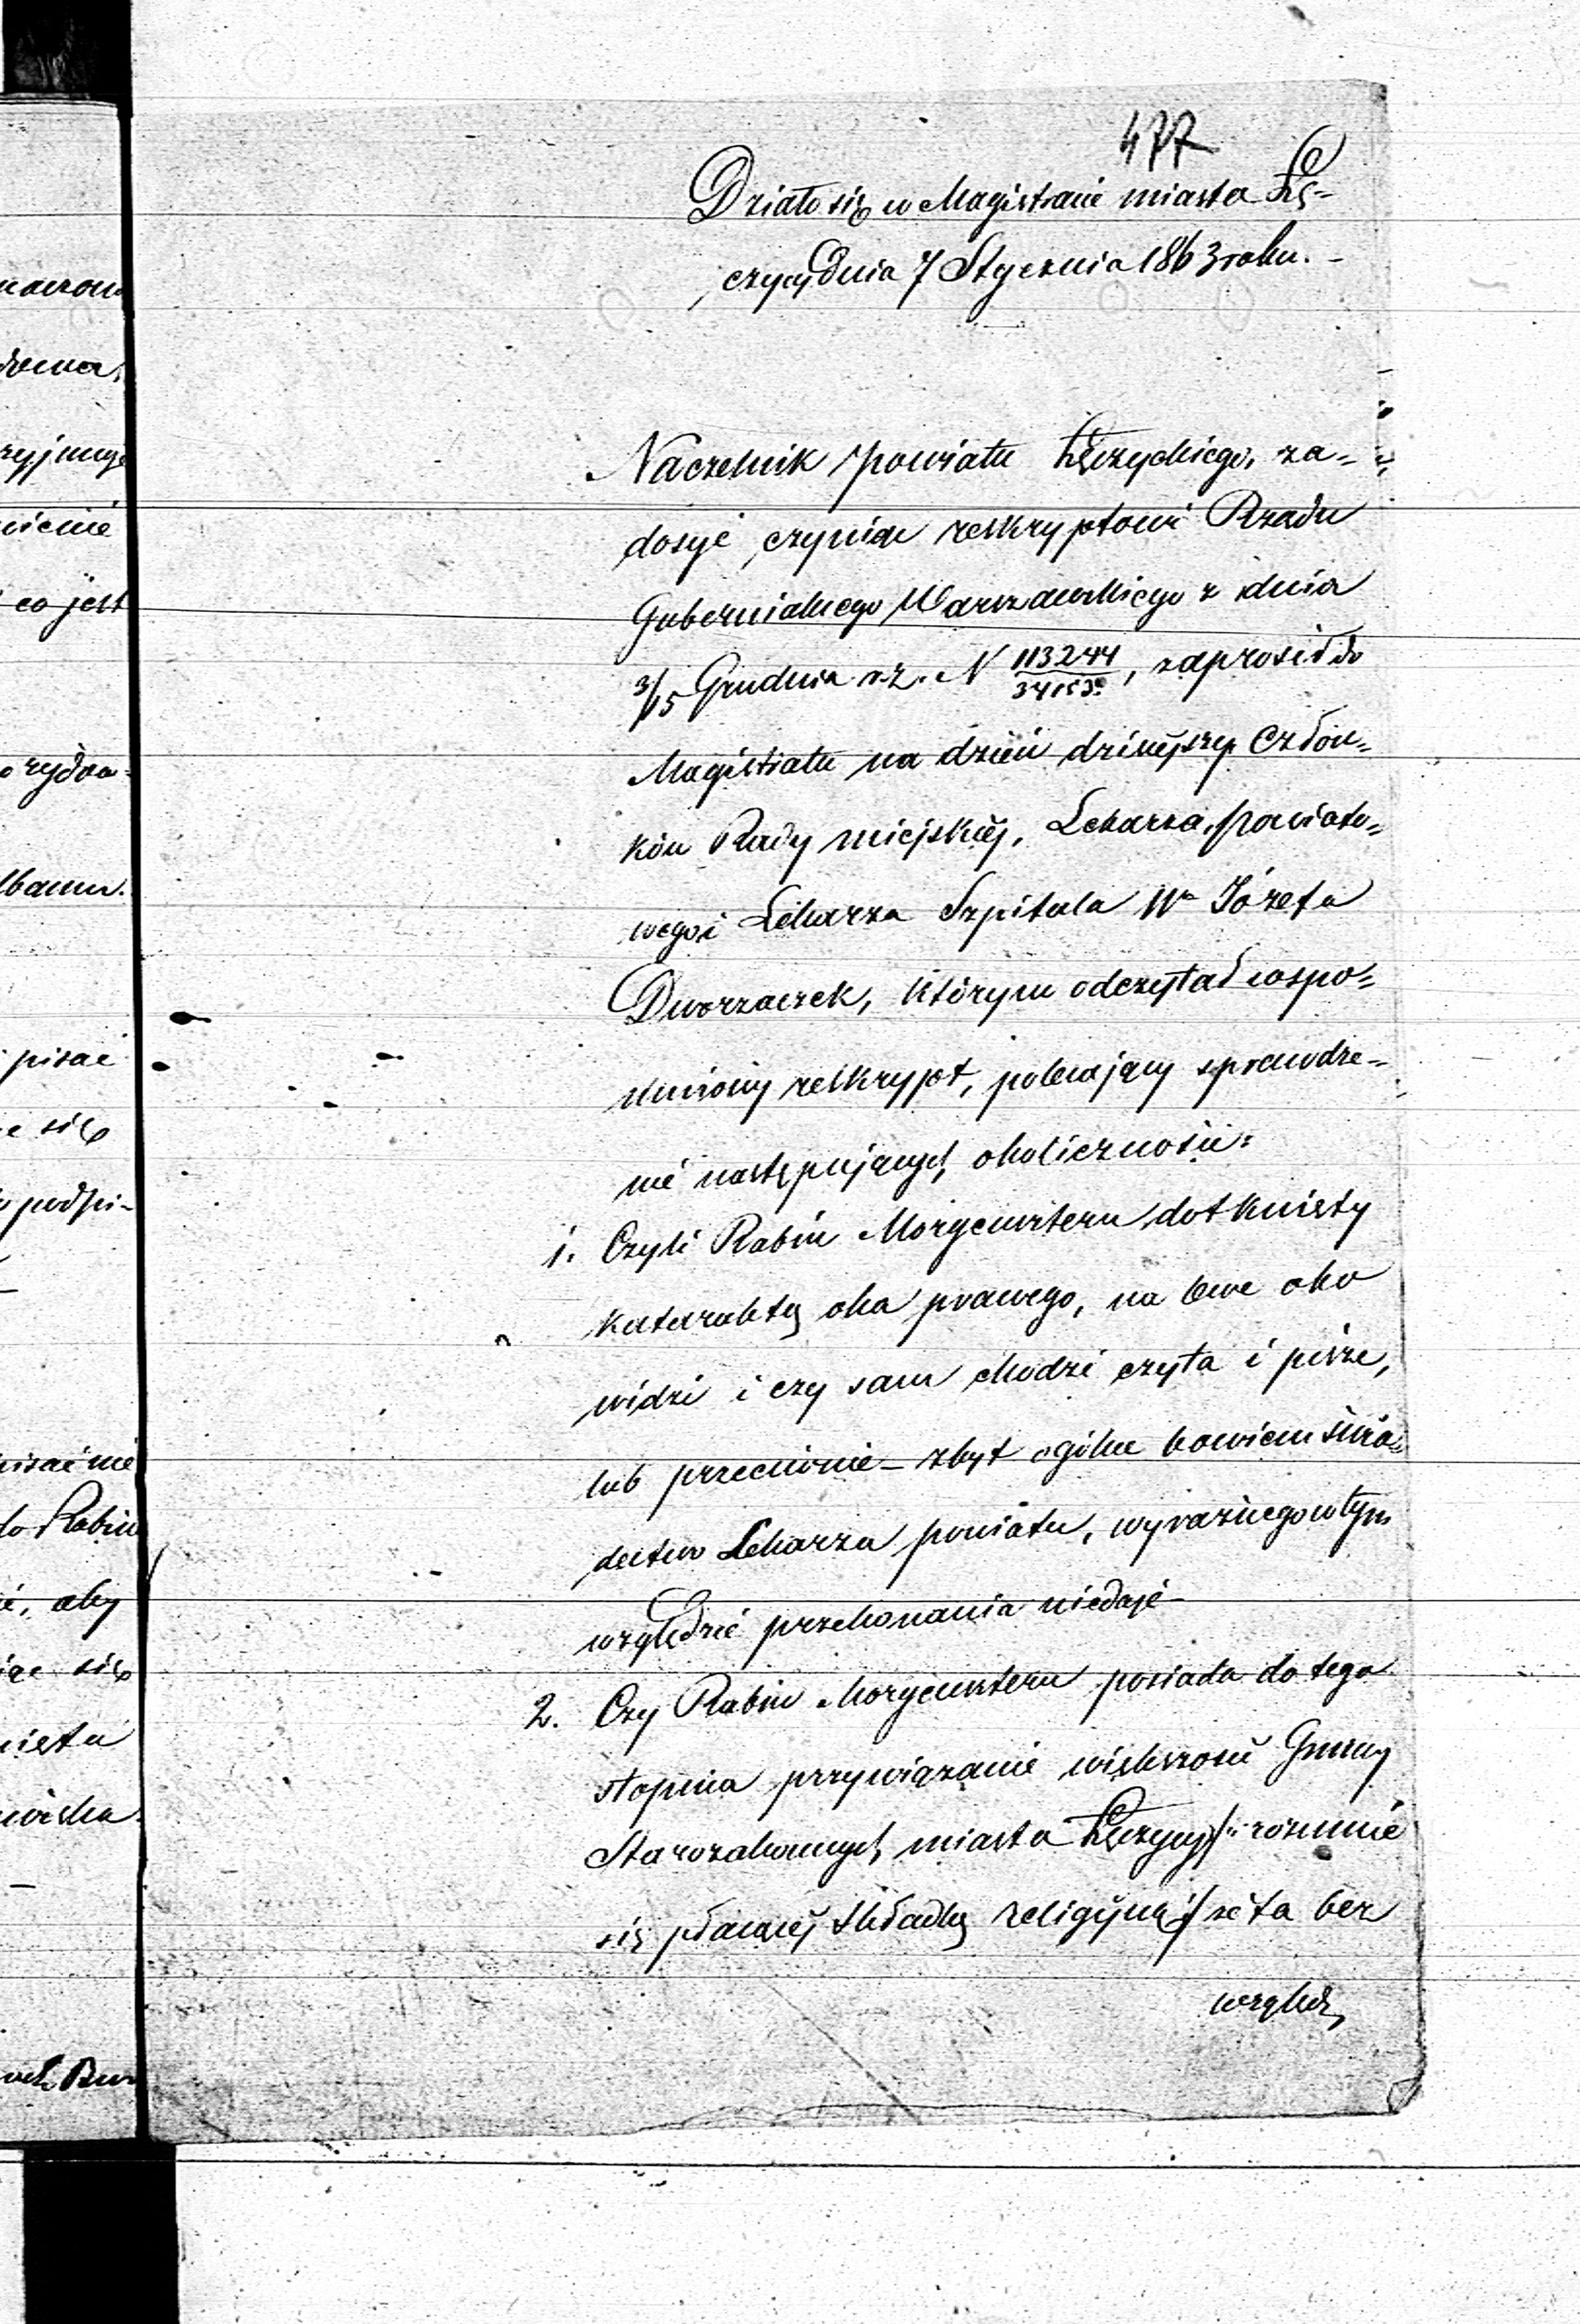 477
Działo się w Magistracie miasta Łę-
czycy dnia 7 Stycznia 1863 roku. -
Naczelnik powiatu Łęczyckiego, za-
dosyć czyniąc reskryptowi Rządu
Gubernialnego Warszawskiego z dnia
3/15 Grudnia r. z. N 113244/, zaprosił do
Magistratu na dzień dzisiejszy Człon=
ków Rady miejskiej, Lekarza powiato=
wego i Lekarza Szpitala Wo Józefa
Dworzaczek, którym odczytał wspo=
mniony reskrypt, polecający sprawdze-
nie następujących okoliczności:
1. Czyli Rabin Morgensztern dotknięty
kataraktą oka prawego, na lewe oko
widzi i czy sam chodzi czyta i pisze,
lub przeciwnie - zbyt ogólne bowiem świa=
dectwo Lekarza powiatu, wyraźnego w tym
względzie przekonania niedaje -
2. Czy Rabin Morgensztern posiada do tego
stopnia przywiązanie większości Gminy
Starozakonnych miasta Łęczycy /: rozumie
się płacącej składkę religijną :/ że ta bez
wzglę
naczon
ryjmuje
wienie
co jest
pisać
e się
podpi-
pisać nie
do Rabin
aby
iąc się